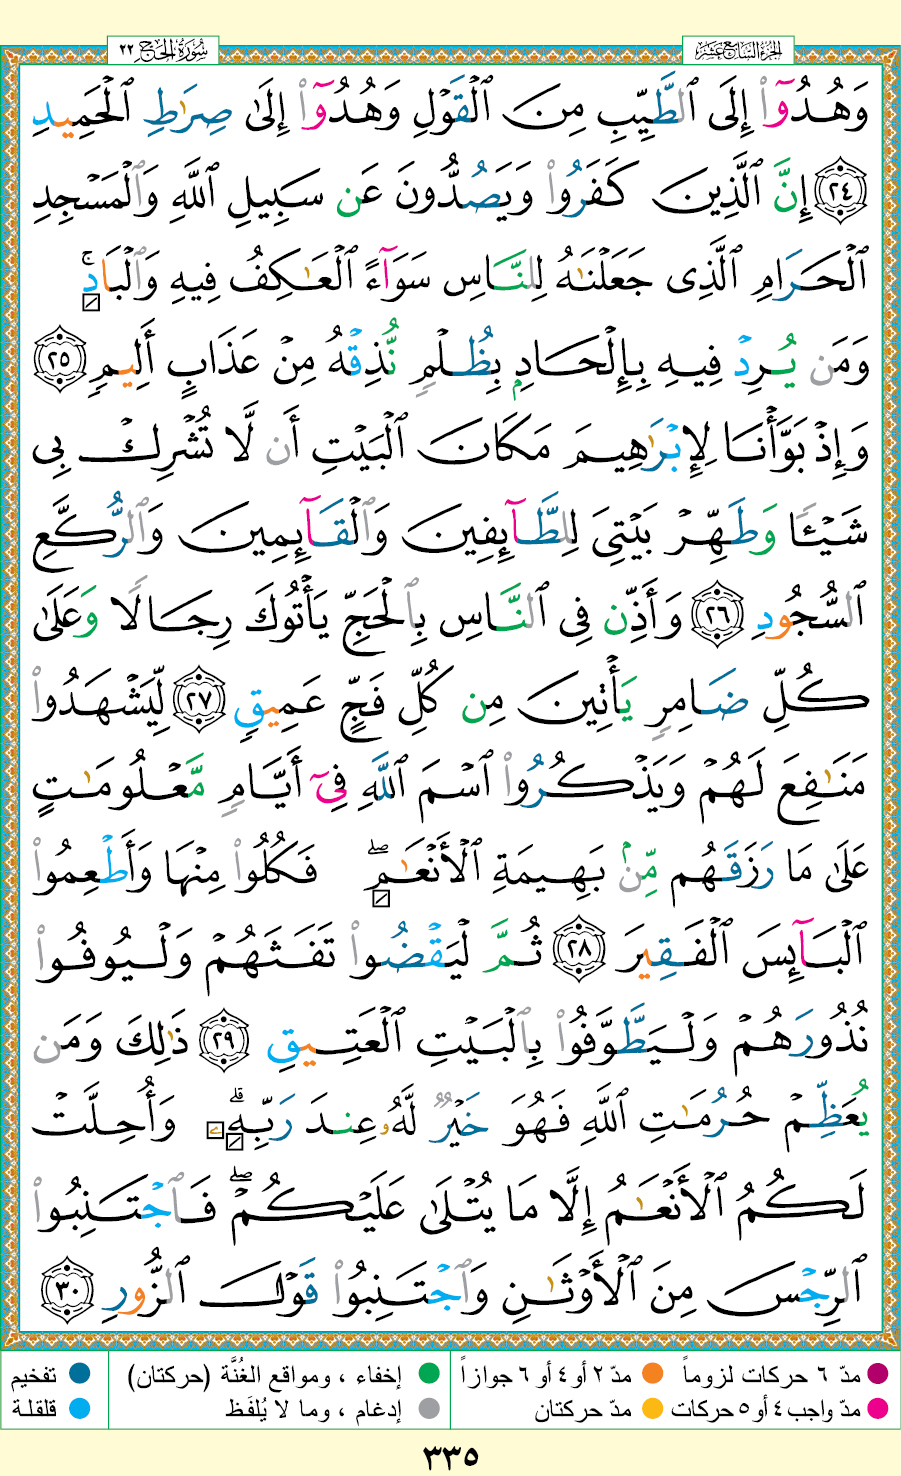 الجزء السابع عشر
سورة الحج ٢٢
وَهُدُوٓا۟ إِلَى ٱلطَّيِّبِ مِنَ ٱلْقَوْلِ وَهُدُوٓا۟ إِلَىٰ صِرَٰطِ ٱلْحَمِيدِ
٢٤ إِنَّ ٱلَّذِينَ كَفَرُوا۟ وَيَصُدُّونَ عَن سَبِيلِ ٱللَّهِ وَٱلْمَسْجِدِ
ٱلْحَرَامِ ٱلَّذِى جَعَلْنَٰهُ لِلنَّاسِ سَوَآءً ٱلْعَٰكِفُ فِيهِ وَٱلْبَادِ ۚ
وَمَن يُرِدْ فِيهِ بِإِلْحَادٍۭ بِظُلْمٍ نُّذِقْهُ مِنْ عَذَابٍ أَلِيمٍ ٢٥
وَإِذْ بَوَّأْنَا لِإِبْرَٰهِيمَ مَكَانَ ٱلْبَيْتِ أَن لَّا تُشْرِكْ بِى
شَيْـًٔا وَطَهِّرْ بَيْتِىَ لِلطَّآئِفِينَ وَٱلْقَآئِمِينَ وَٱلرُّكَّعِ
ٱلسُّجُودِ ٢٦ وَأَذِّن فِى ٱلنَّاسِ بِٱلْحَجِّ يَأْتُوكَ رِجَالًا وَعَلَىٰ
كُلِّ ضَامِرٍ يَأْتِينَ مِن كُلِّ فَجٍّ عَمِيقٍ ٢٧ لِّيَشْهَدُوا۟
مَنَٰفِعَ لَهُمْ وَيَذْكُرُوا۟ ٱسْمَ ٱللَّهِ فِىٓ أَيَّامٍ مَّعْلُومَٰتٍ
عَلَىٰ مَا رَزَقَهُم مِّنۢ بَهِيمَةِ ٱلْأَنْعَٰمِ ۖ فَكُلُوا۟ مِنْهَا وَأَطْعِمُوا۟
ٱلْبَآئِسَ ٱلْفَقِيرَ ٢٨ ثُمَّ لْيَقْضُوا۟ تَفَثَهُمْ وَلْيُوفُوا۟
نُذُورَهُمْ وَلْيَطَّوَّفُوا۟ بِٱلْبَيْتِ ٱلْعَتِيقِ ٢٩ ذَٰلِكَ وَمَن
يُعَظِّمْ حُرُمَٰتِ ٱللَّهِ فَهُوَ خَيْرٌ لَّهُۥ عِندَ رَبِّهِۦ ۗ وَأُحِلَّتْ
لَكُمُ ٱلْأَنْعَٰمُ إِلَّا مَا يُتْلَىٰ عَلَيْكُمْ ۖ فَٱجْتَنِبُوا۟
ٱلرِّجْسَ مِنَ ٱلْأَوْثَٰنِ وَٱجْتَنِبُوا۟ قَوْلَ ٱلزُّورِ ٣٠
مدّ ٦ حركات لزوماً مدّ ٢ أو ٤ أو ٦ جوازاً إخفاء ، ومواقع الغُنَّة (حركتان) تفخيم
مدّ واجب ٤ أو ٥ حركات مدّ حركتان إدغام ، وما لا يُلفَظ قلقلة
٣٣٥